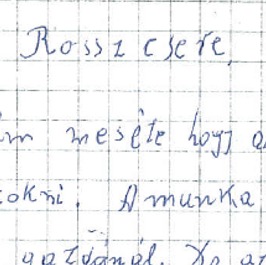 Rossz csere.
m mesélte hogy a
okni. A munka
gazdánál.